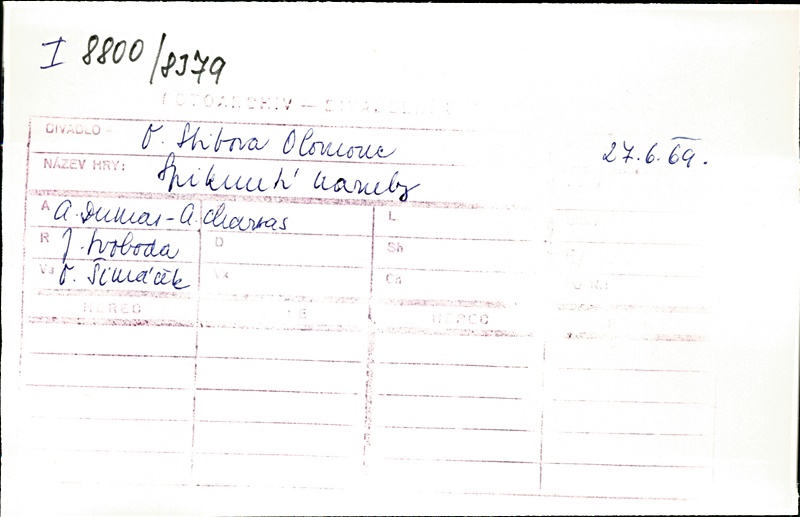 I 8800/8379
FOTOARCHIV —
DIVADLO — O. Stibora Olomouc 27.6.69.
NÁZEV HRY: Spiknutí naruby
A A. Dumas - A. Charras L
R J. Svoboda D Sh
Vs O. Šimáček Vk Ch
HEREC HEREC